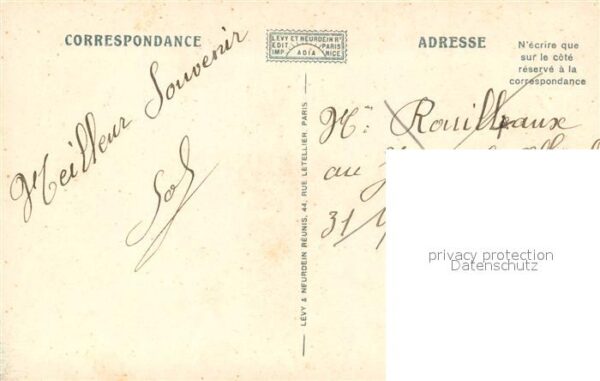 CORRESPONDANCE
LÉVY ET NEURDEIN Rs
EDIT PARIS
IMP. ADIA NICE
ADRESSE
N'écrire que
sur le côté
réservé à la
correspondance
Meilleur Souvenir
LÉVY & NEURDEIN RÉUNIS, 44, RUE LETELLIER, PARIS
Rouilleaux
au
31
privacy protection
Datenschutz